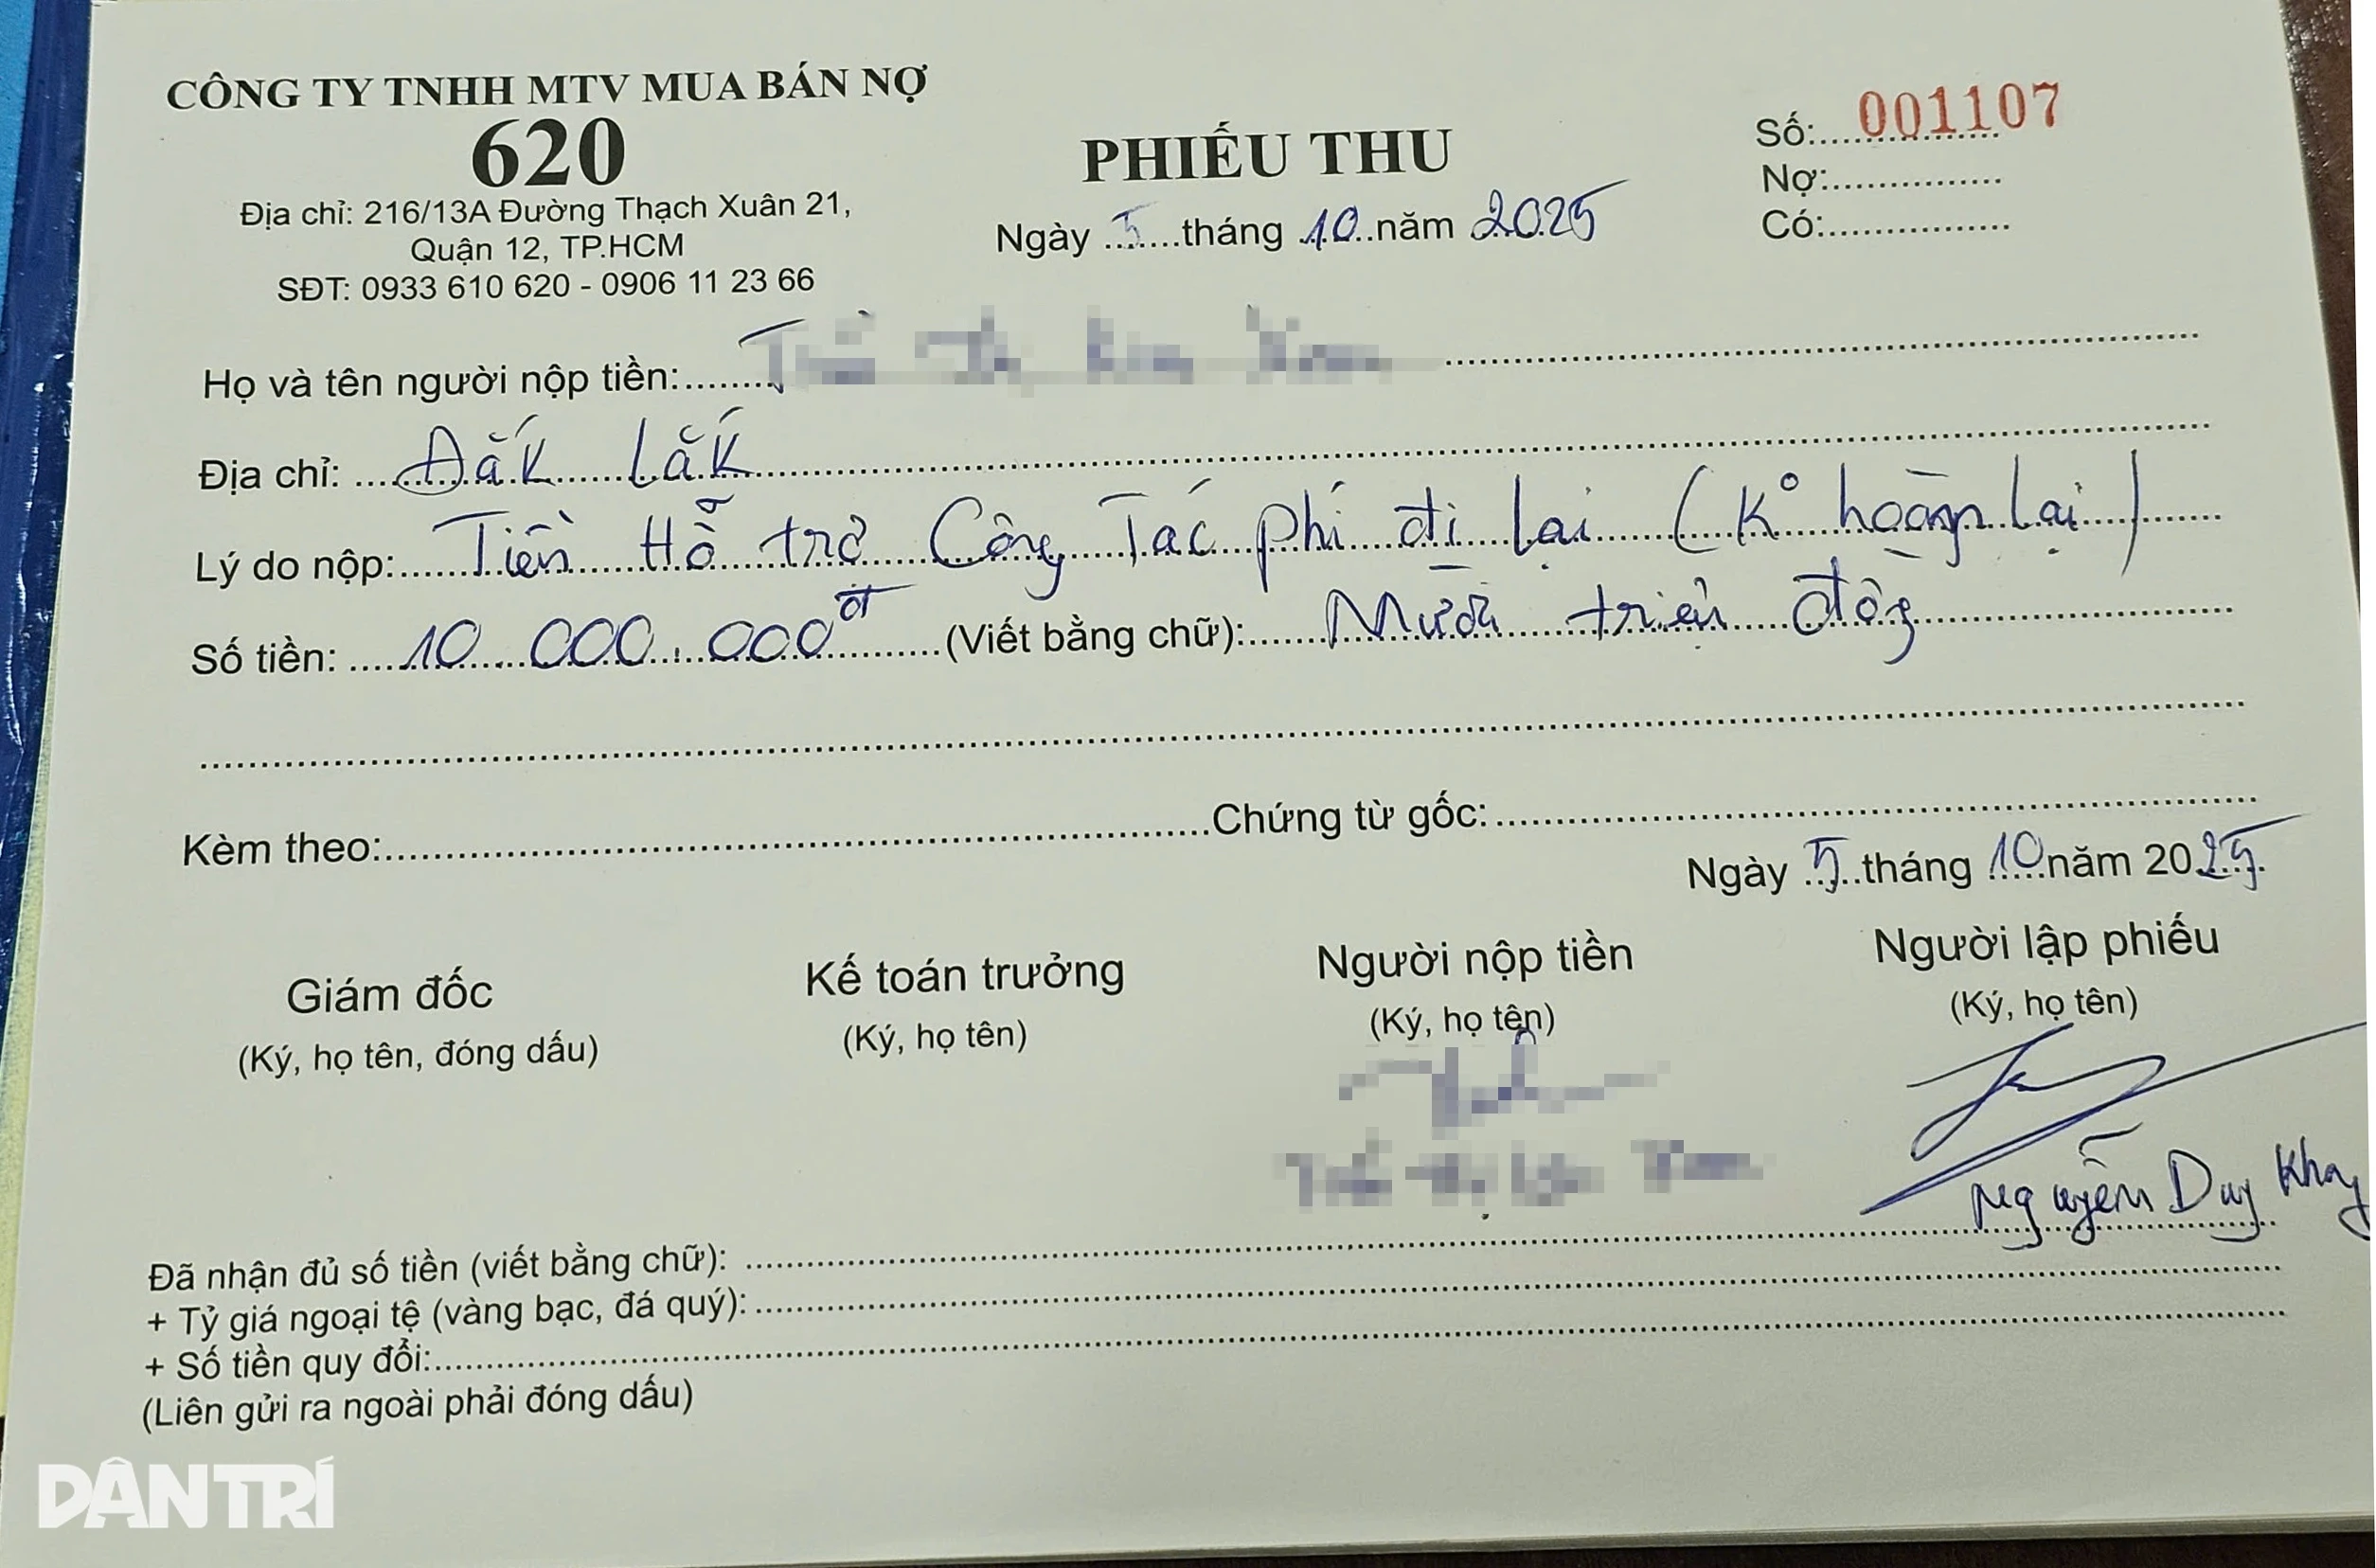 CÔNG TY TNHH MTV MUA BÁN NỢ
620
Địa chỉ: 216/13A Đường Thạch Xuân 21,
Quận 12, TP.HCM
SĐT: 0933 610 620 - 0906 11 23 66
PHIẾU THU
Ngày 5 tháng 10 năm 2025
Số: 001107
Nợ:
Có:
Họ và tên người nộp tiền:
Địa chỉ: Đắk Lắk
Lý do nộp: Tiền Hỗ trợ Công Tác phí đi lại (K° hoàn lại)
Số tiền: 10.000.000đ (Viết bằng chữ): Mười triệu đồng
Kèm theo: Chứng từ gốc:
Ngày 5 tháng 10 năm 2025
Giám đốc
(Ký, họ tên, đóng dấu)
Kế toán trưởng
(Ký, họ tên)
Người nộp tiền
(Ký, họ tên)
Người lập phiếu
(Ký, họ tên)
Nguyễn Duy
Đã nhận đủ số tiền (viết bằng chữ):
+ Tỷ giá ngoại tệ (vàng bạc, đá quý):
+ Số tiền quy đổi:
(Liên gửi ra ngoài phải đóng dấu)
DÂN TRÍ